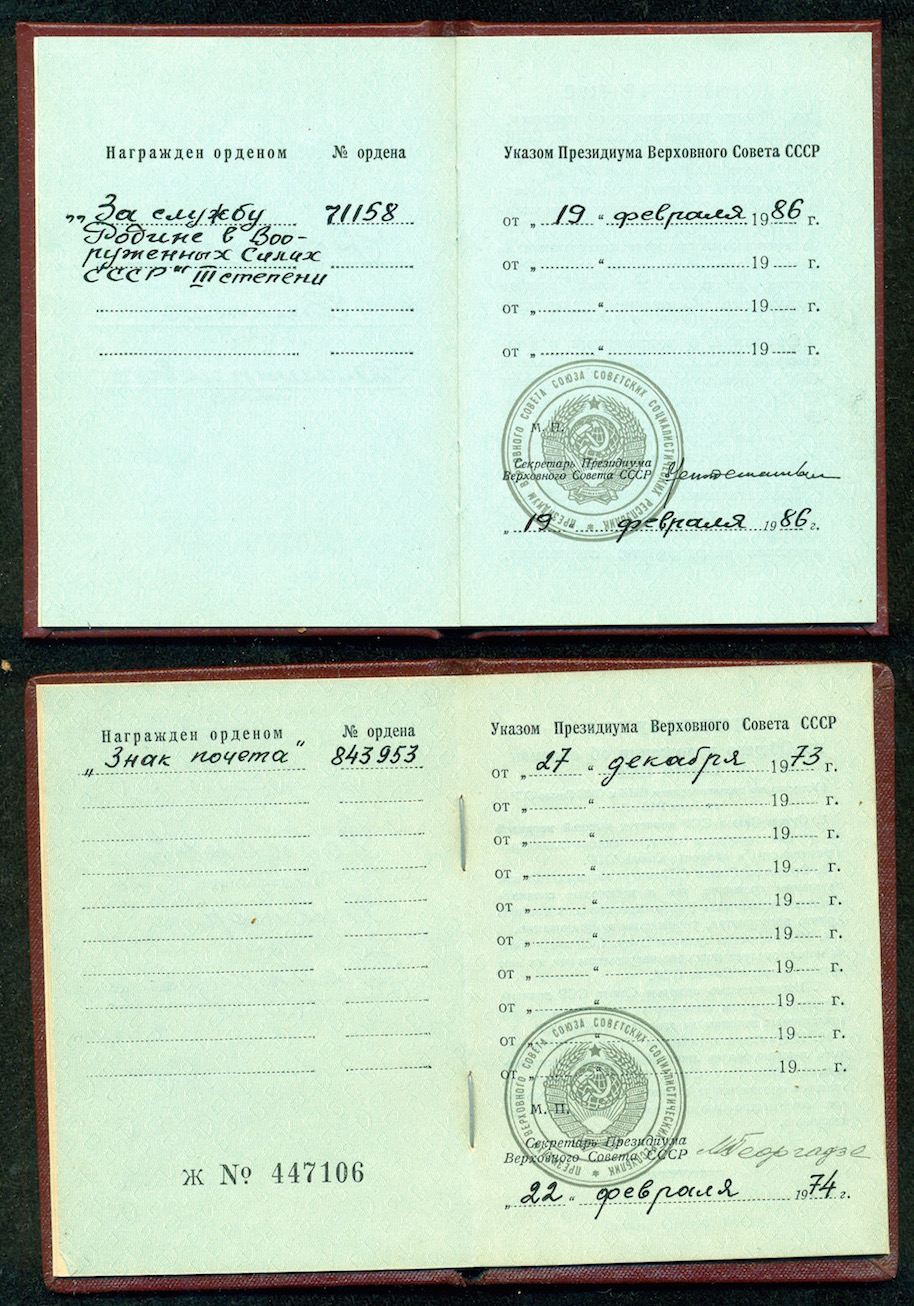 Награжден орденом № ордена
„За службу 71158
Родине в Воо-
руженных Силах
СССР" III степени
Указом Президиума Верховного Совета СССР
от „19“ февраля 1986 г.
от „ “ 19 г.
от „ “ 19 г.
от „ “ 19 г.
ПРЕЗИДИУМ ВЕРХОВНОГО СОВЕТА СОЮЗА СОВЕТСКИХ СОЦИАЛИСТИЧЕСКИХ РЕСПУБЛИК
М. П.
Секретарь Президиума
Верховного Совета СССР
„19“ февраля 1986 г.
Награжден орденом № ордена
„Знак почета“ 843953
Ж № 447106
Указом Президиума Верховного Совета СССР
от „27“ декабря 1973 г.
от „ “ 19 г.
от „ “ 19 г.
от „ “ 19 г.
от „ “ 19 г.
от „ “ 19 г.
от „ “ 19 г.
от „ “ 19 г.
от „ “ 19 г.
от „ “ 19 г.
ПРЕЗИДИУМ ВЕРХОВНОГО СОВЕТА СОЮЗА СОВЕТСКИХ СОЦИАЛИСТИЧЕСКИХ РЕСПУБЛИК
М. П.
Секретарь Президиума
Верховного Совета СССР МГеоргадзе
„22“ февраля 1974 г.